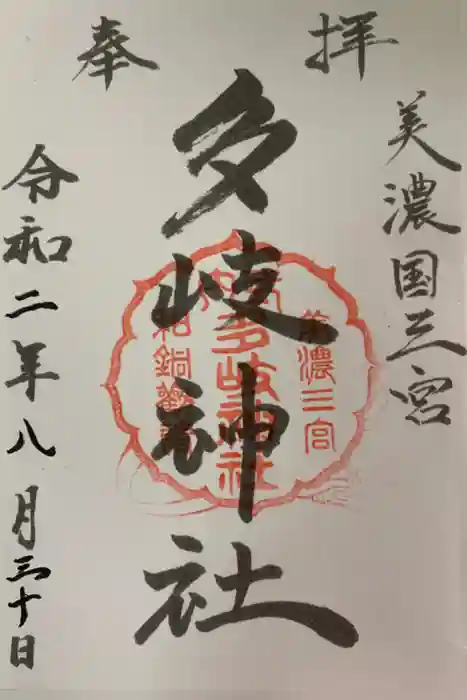 奉拝
美濃国三宮
多岐神社
令和二年八月三十日
美濃三宮
多岐神社